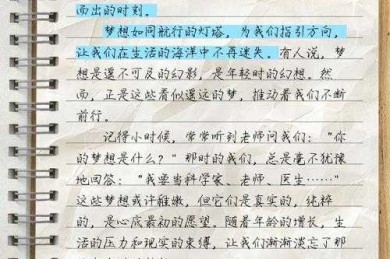 而出的时刻。
梦想如同航行的灯塔，为我们指引方向，
让我们在生活的海洋中不再迷失。有人说，梦
想是遥不可及的幻影，是年轻时的幻想。然
而，正是这些看似遥远的梦，推动着我们不断
前行。
记得小时候，常常听到老师问我们："你
的梦想是什么？"那时的我们，总是毫不犹豫
地回答："我要当科学家、老师、医生……"
这些梦想或许稚嫩，但它们是真实的，纯粹
的，是心底最初的愿望。随着年龄的增长，生
活的压力和现实的束缚，让我们渐渐淡忘了那